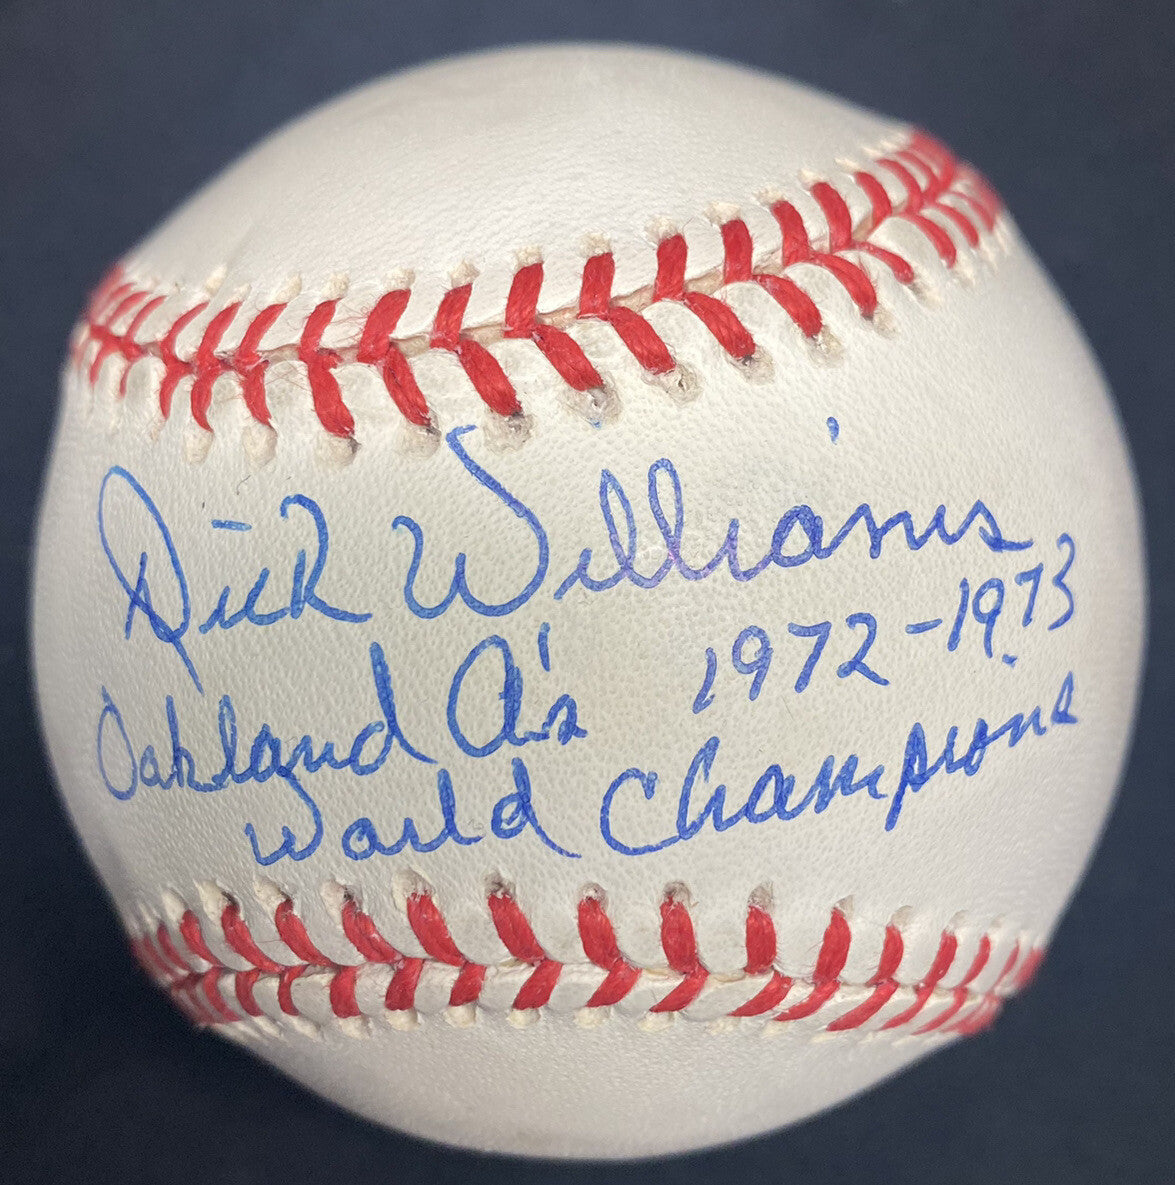 Dick Williams
Oakland A's 1972-1973
World Champions